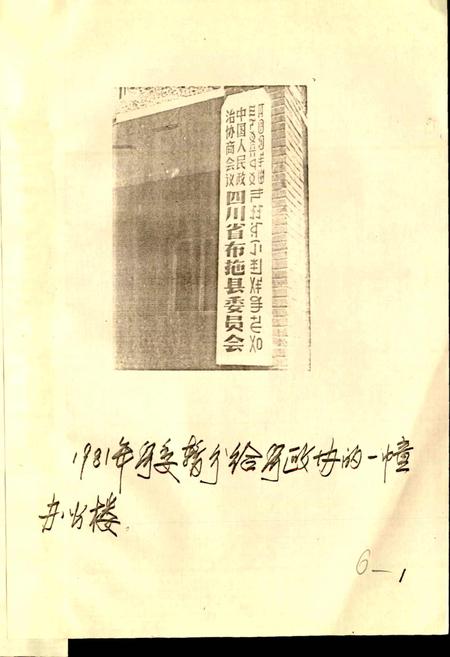 中国人民政
治协商会议
四川省布拖县委员会
1981年县委暂分给县政协的一幢
办公楼
6-1